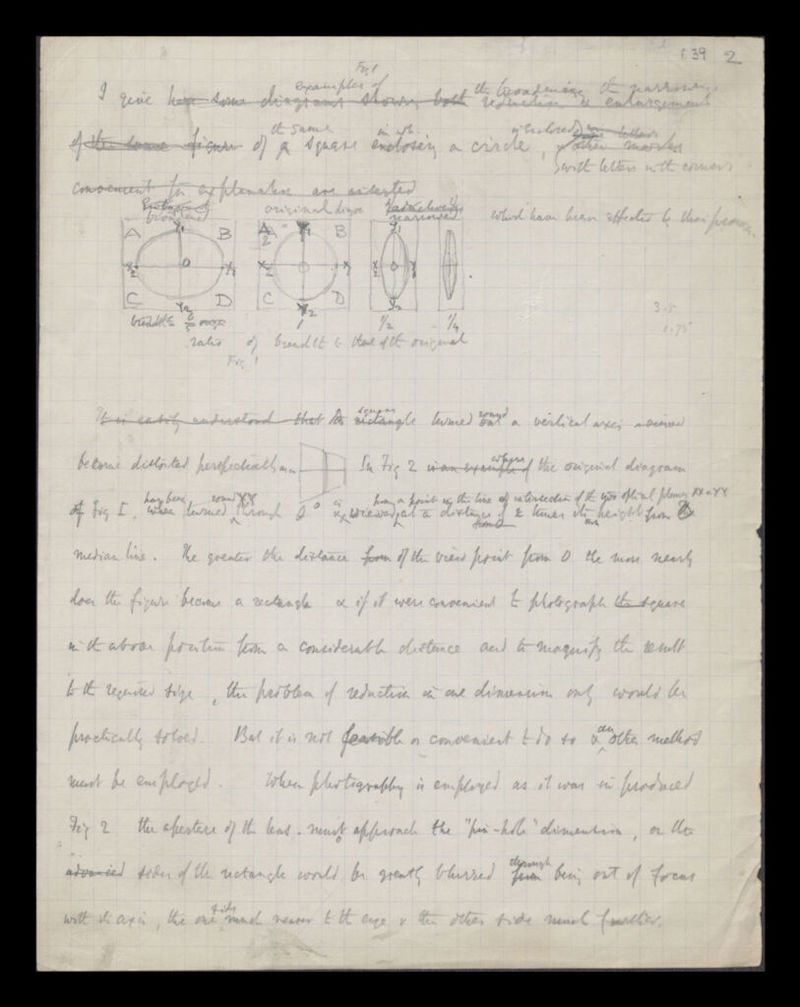 f. 39 2
Fig 1
examples of the broadening the narrowing
I give here some diagrams shown both reduction & enlargement
the same in wh. inclosed letters
of the same figure of a square enclosing a circle, other marks
with letters in the corners
convenient for explanation are inserted
broadened original diagr narrowed which have been effected by this process
A B A B
X2 O X1 X2 X1
C D C D
Y1 Y2 Y1 Y2
breadth 1 1/2 1/4
3.5
0.75
ratio of breadth to that of the original
Fig 1
square round
It is easily understood that the rectangle turned out a vertical axis
where
become distorted perspectively as in In Fig 2 is an example of the original diagram
having been round YY from a point in the line of intersection of the two optical planes XX & YY
of Fig I, when turned through 0° is viewed at a distance of times its height from O
median line. The greater the distance from of the view point from O the more nearly
does the figure become a rectangle & if it were convenient to photograph the square
in the above position from a considerable distance and to magnify the result
to the required size, the problem of reduction in one dimension only would be
practically solved. But it is not feasible or convenient to do so & another method
must be employed. When photography is employed as it was in produced
Fig 2 the aperture of the lens must approach the "pin-hole" dimension, or the
through
advanced sides of the rectangle would be greatly blurred from being out of focus
side
with its axis, the one much nearer to the eye & the other side much further.